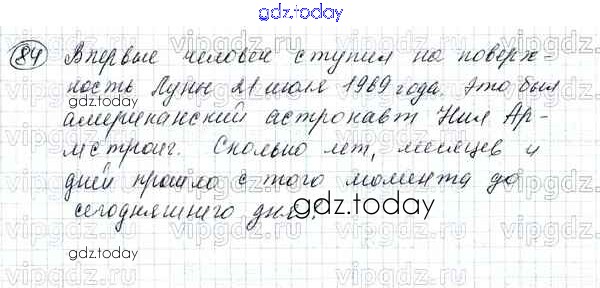 gdz.today
84 Впервые человек ступил на поверх-
ность Луны 21 июля 1969 года. Это был
американский астронавт Нил Ар-
мстронг. Сколько лет, месяцев и
дней прошло с того момента до
сегодняшнего дня?
gdz.today
gdz.today
gdz.today
gdz.today
vipgdz.ru